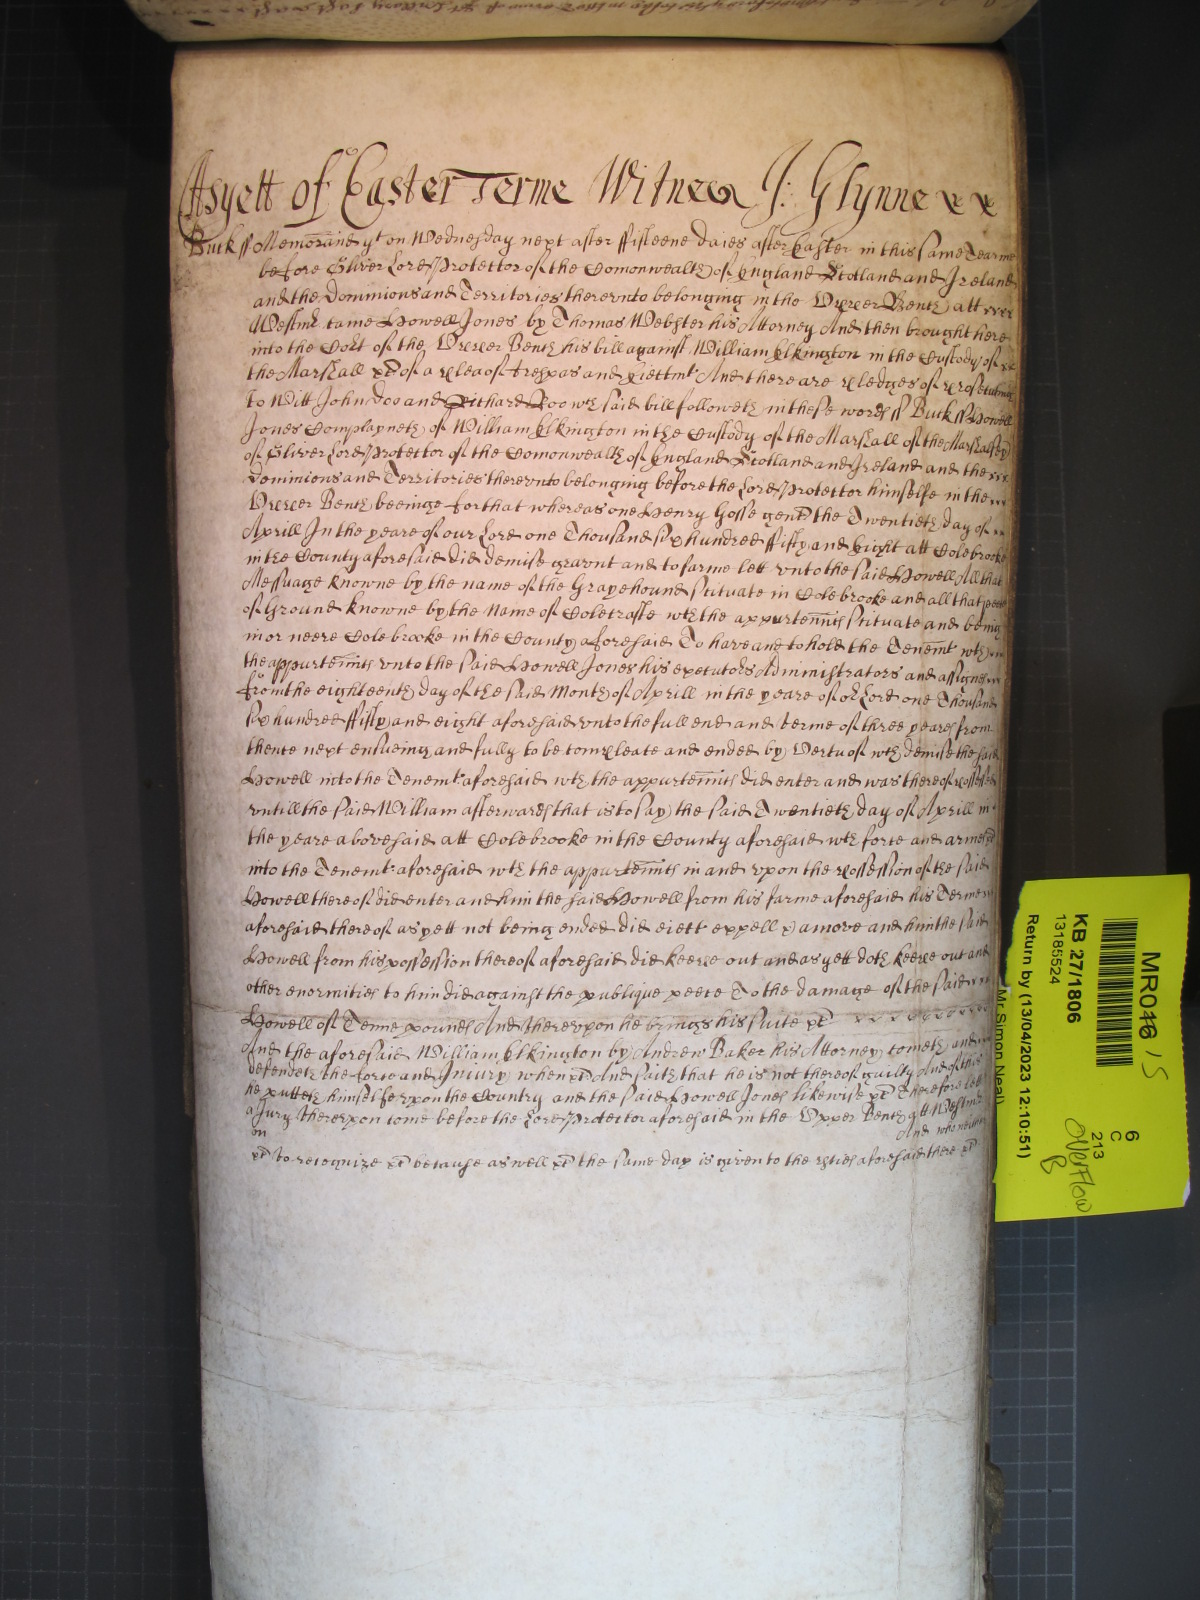 As yett of Easter Terme Witnes J: Glynne x x
Buck ss Memorand yt on Wednesday next after ffifteene daies after Easter in this same Tearme
before Oliver Lord Protector of the Comonwealth of England Scotland and Ireland
and the Dominions and Territories therevnto belonging in the Vpper Bench att
Westmr came Howell Jones by Thomas Webster his Attorney And then brought here
into the Cort of the Vpper Bench his bill against William Elkington in the Custody of
the Marshall &c of a plea of trespas and eiectmt And there are pledges of prosecuting
to Witt John Doo and Richard Roo wch said bill followeth in these words ss Buck ss Howell
Jones Complayneth of William Elkington in the Custody of the Marshall of the Marshalsey
of Oliver Lord Protector of the Comonwealth of England Scotland and Ireland and the
dominions and Territories therevnto belonging before the Lord Protector himselfe in the
Vpper Bench beeinge for that whereas one Henry Gosse gent the Twentieth day of
Aprill In the yeare of our Lord one Thousand six hundred ffifty and Eight att Colebrooke
in the County aforesaid did demise graunt and to farme lett vnto the said Howell All that
Messuage knowne by the name of the Grayehound scituate in Colebrooke and all that peece
of Ground knowne by the Name of Colecrofte wth the appurtennts scituate and being
in or neere Colebrooke in the County aforesaid To have and to hold the Tenemt wth
the appurtennts vnto the said Howell Jones his executors Administrators and assignes
from the eighteenth day of the said Month of Aprill in the yeare of or Lord one Thousand
six hundred ffifty and eight aforesaid vnto the full end and terme of three yeares from
thence next ensueing and fully to be compleate and ended by Vertu of wch demise the said
Howell into the Tenemt aforesaid wth the appurtennts did enter and was thereof possessed
vntill the said William afterwards that is to say the said Twentieth day of Aprill in
the yeare abovesaid att Colebrooke in the County aforesaid wth force and armes &c
into the Tenemt aforesaid wth the appurtennts in and vpon the possession of the said
Howell thereof did enter and him the said Howell from his farme aforesaid his Terme
aforesaid thereof as yett not being ended did eiect expell & amove and him the said
Howell from his possession thereof aforesaid did keepe out and as yett doth keepe out and
other enormities to him did against the publique peece To the damage of the said
Howell of Tenne pounds And therevpon he brings his suite &c
And the aforesaid William Elkington by Andrew Baker his Attorney cometh and
defendeth the force and Iniury when &c And saith that he is not thereof guilty And of this
he putteth himselfe vpon the Country and the said Howell Jones likewise &c Therefore lett
a Jury therevpon come before the Lord Protector aforesaid in the Vpper Bench att Westmr
on And who neither
&c to recognize &c because as well &c the same day is given to the pties aforesaid there &c
MR046 / 15
KB 27/1806
13185524
Return by (13/04/2023 12:10:51)
Mr Simon Neal
6
C
213
Overflow
B